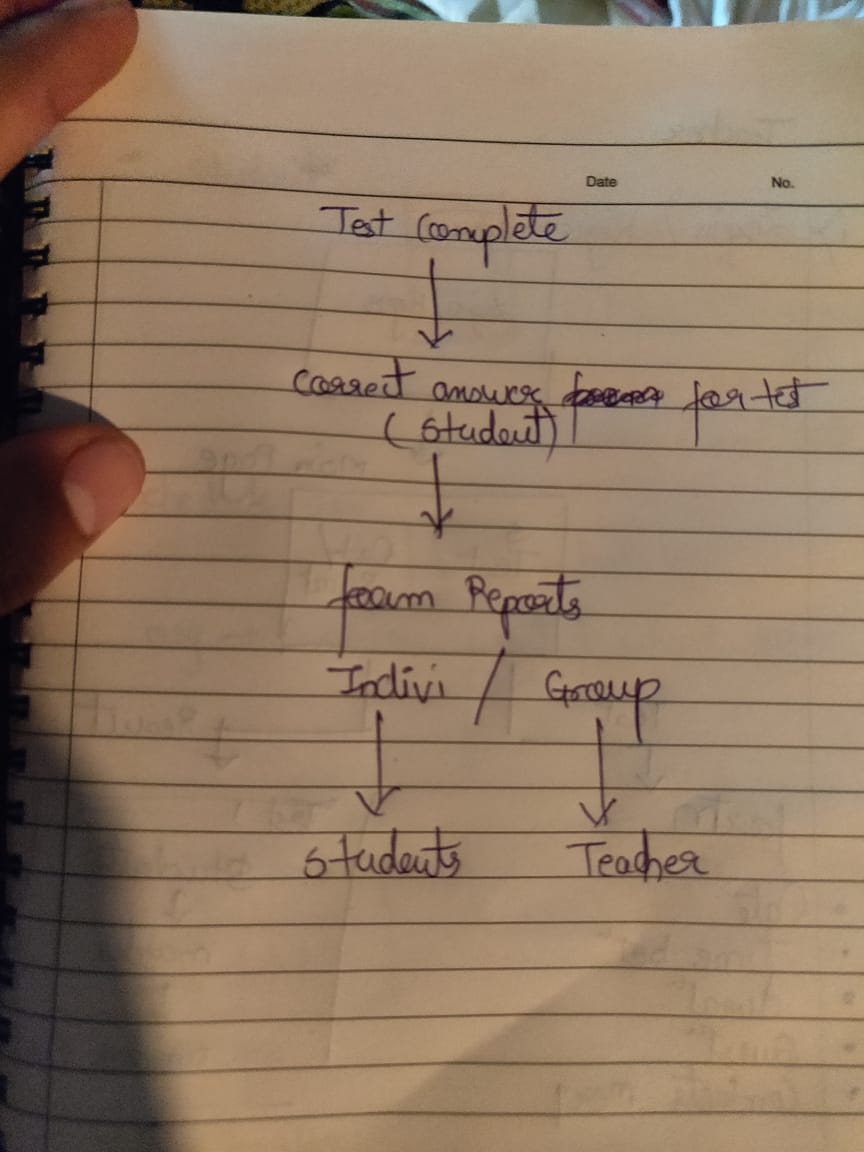 Date No.
Test Complete
Correct answer for test
(Student)
form Reports
Indivi / Group
Students Teacher